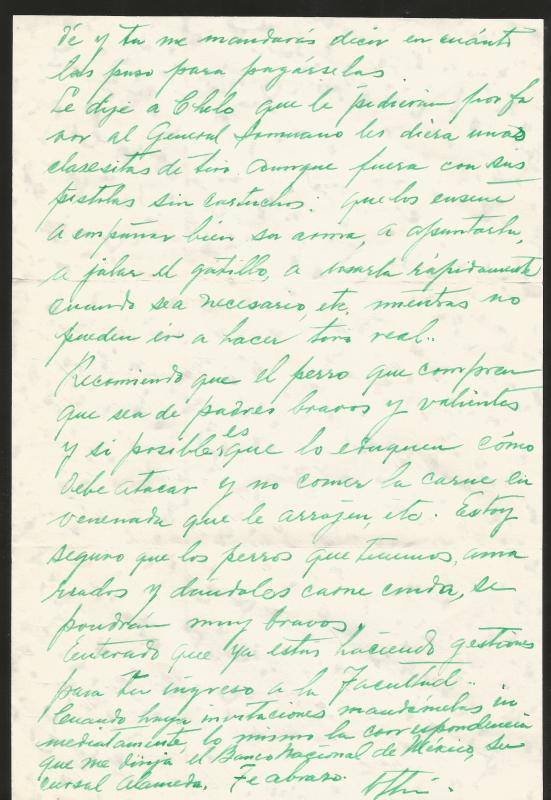 té y tu me mandarás decir en cuánto
las puso para pagárselas.
Le dije a Chelo que le pidieran por fa
vor al General Romano les diera unas
clasesitas de tiro. Aunque fuera con sus
pistolas sin cartuchos: que los enseñe
a empuñar bien su arma, a apuntarla,
a jalar el gatillo, a usarla rápidamente
cuando sea necesario, etc. mientras no
pueden ir a hacer tiro real..
Recomiendo que el perro que compren
que sea de padres bravos y valientes
y si posible es que lo eduquen cómo
debe atacar y no comer la carne en
venenada que le arrojen, etc. Estoy
seguro que los perros que tenemos, ama
rrados y dándoles carne cruda, se
pondrán muy bravos.
Enterado que ya estas haciendo gestiones
para tu ingreso a la Facultad..
Cuando haya invitaciones mandamelas in
mediatamente, lo mismo la correspondencia
que me dirija el Banco Nacional de México, Su
cursal Alameda. Te abrazo.